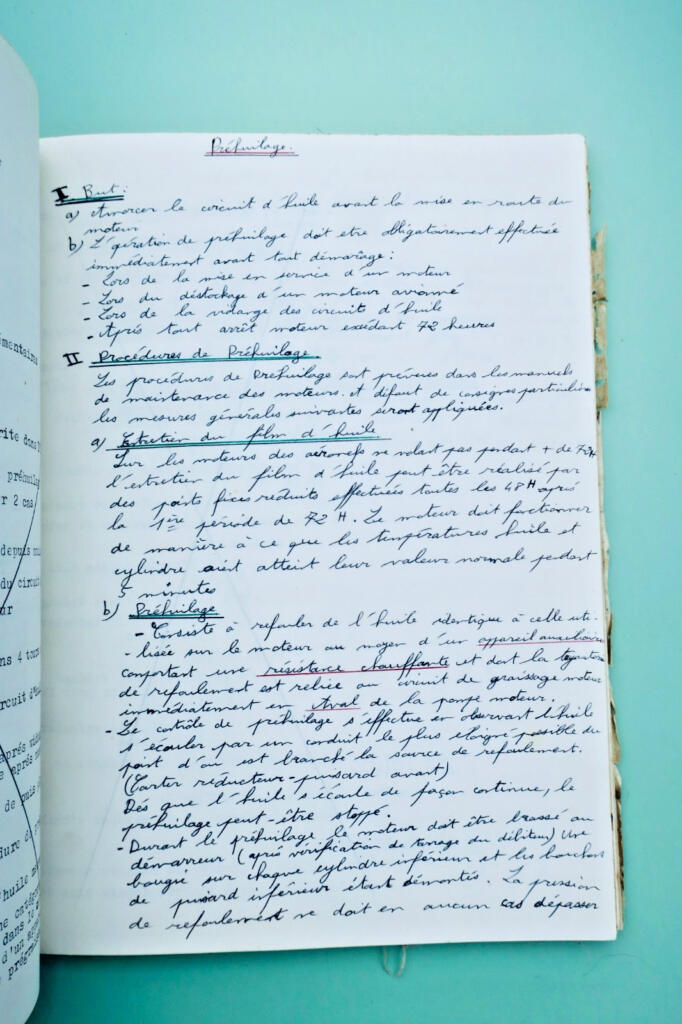 émentaires
rite dans
préhuilag
r 2 cas
depuis
du circuit
ur
ns 4 tours
rcuit d'hui
après vida
e après
de puis
dure de
'huile
ne catégo
dans le
d'un
progre
Préhuilage.
I But:
a) Amorcer le circuit d'huile avant la mise en route du
moteur
b) L'opération de préhuilage doit etre obligatoirement effectuée
immédiatement avant tout démarage:
- Lors de la mise en service d'un moteur
- Lors du déstockage d'un moteur avionné
- Lors de la vidange des circuits d'huile
- Après tout arrêt moteur exédant 72 heures
II Procédures de Préhuilage.
Les procédures de Préhuilage sont prévues dans les manuels
de maintenance des moteurs. et défaut de consignes particulières
les mesures générales suivantes seront appliquées.
a) Entretien du film d'huile
Sur les moteurs des aéronefs ne volant pas pendant + de 72H
l'entretien du film d'huile peut être réalisé par
des points fixes réduits effectuées toutes les 48H après
la 1ère période de 72 H. Le moteur doit fonctionner
de manière à ce que les températures huile et
cylindre aient atteint leur valeur normale pendant
5 minutes
b) Préhuilage
- Consiste à refouler de l'huile identique à celle uti-
- lisée sur le moteur au moyen d'un appareil auxiliaire
comportant une résistance chauffante et dont la
de refoulement est reliée au circuit de graissage moteur
immédiatement en Aval de la pompe moteur.
- Le contrôle de préhuilage s'effectue en observant l'huile
s'écouler par un conduit le plus éloigné possible du
point d'où est branché la source de refoulement.
(Carter réducteur-puisard avant)
Dés que l'huile s'écoule de façon continue, le
préhuilage peut-être stoppé.
- Durant le préhuilage le moteur doit être brassé au
démarreur (après vérification de tarage du débiteur) Une
bougie sur chaque cylindre inférieur et les bouchons
de puisard inférieur étant démontés. La pression
de refoulement ne doit en aucun cas dépasser